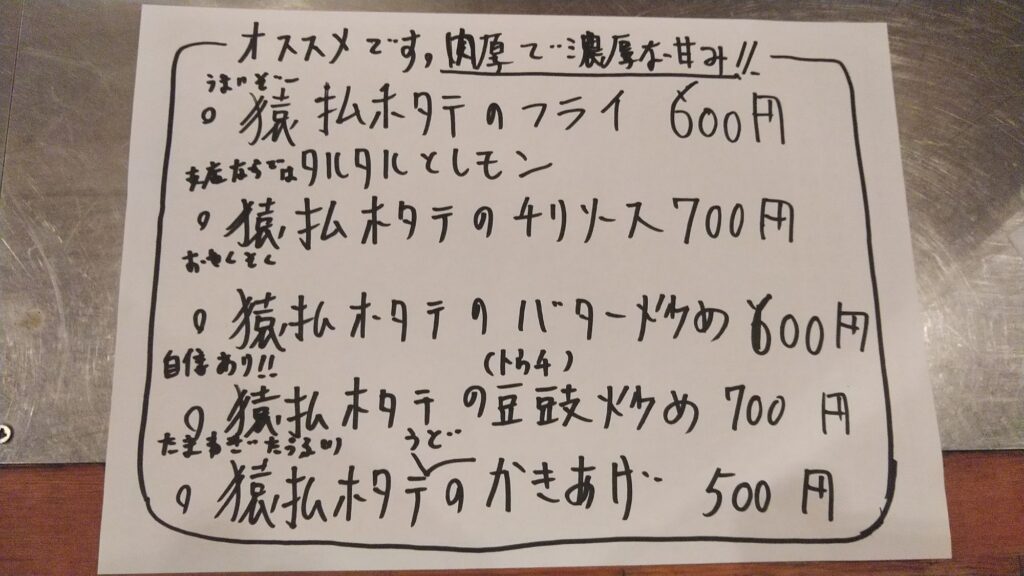 オススメです,肉厚で濃厚な甘み!!
うまいぞー
○ 猿払ホタテのフライ 600円
タルタルとレモン
○ 猿払ホタテのチリソース 700円
○ 猿払ホタテのバター炒め 600円
自信あり!! (トウチ)
○ 猿払ホタテの豆豉炒め 700円
うど
○ 猿払ホタテのかきあげ 500円